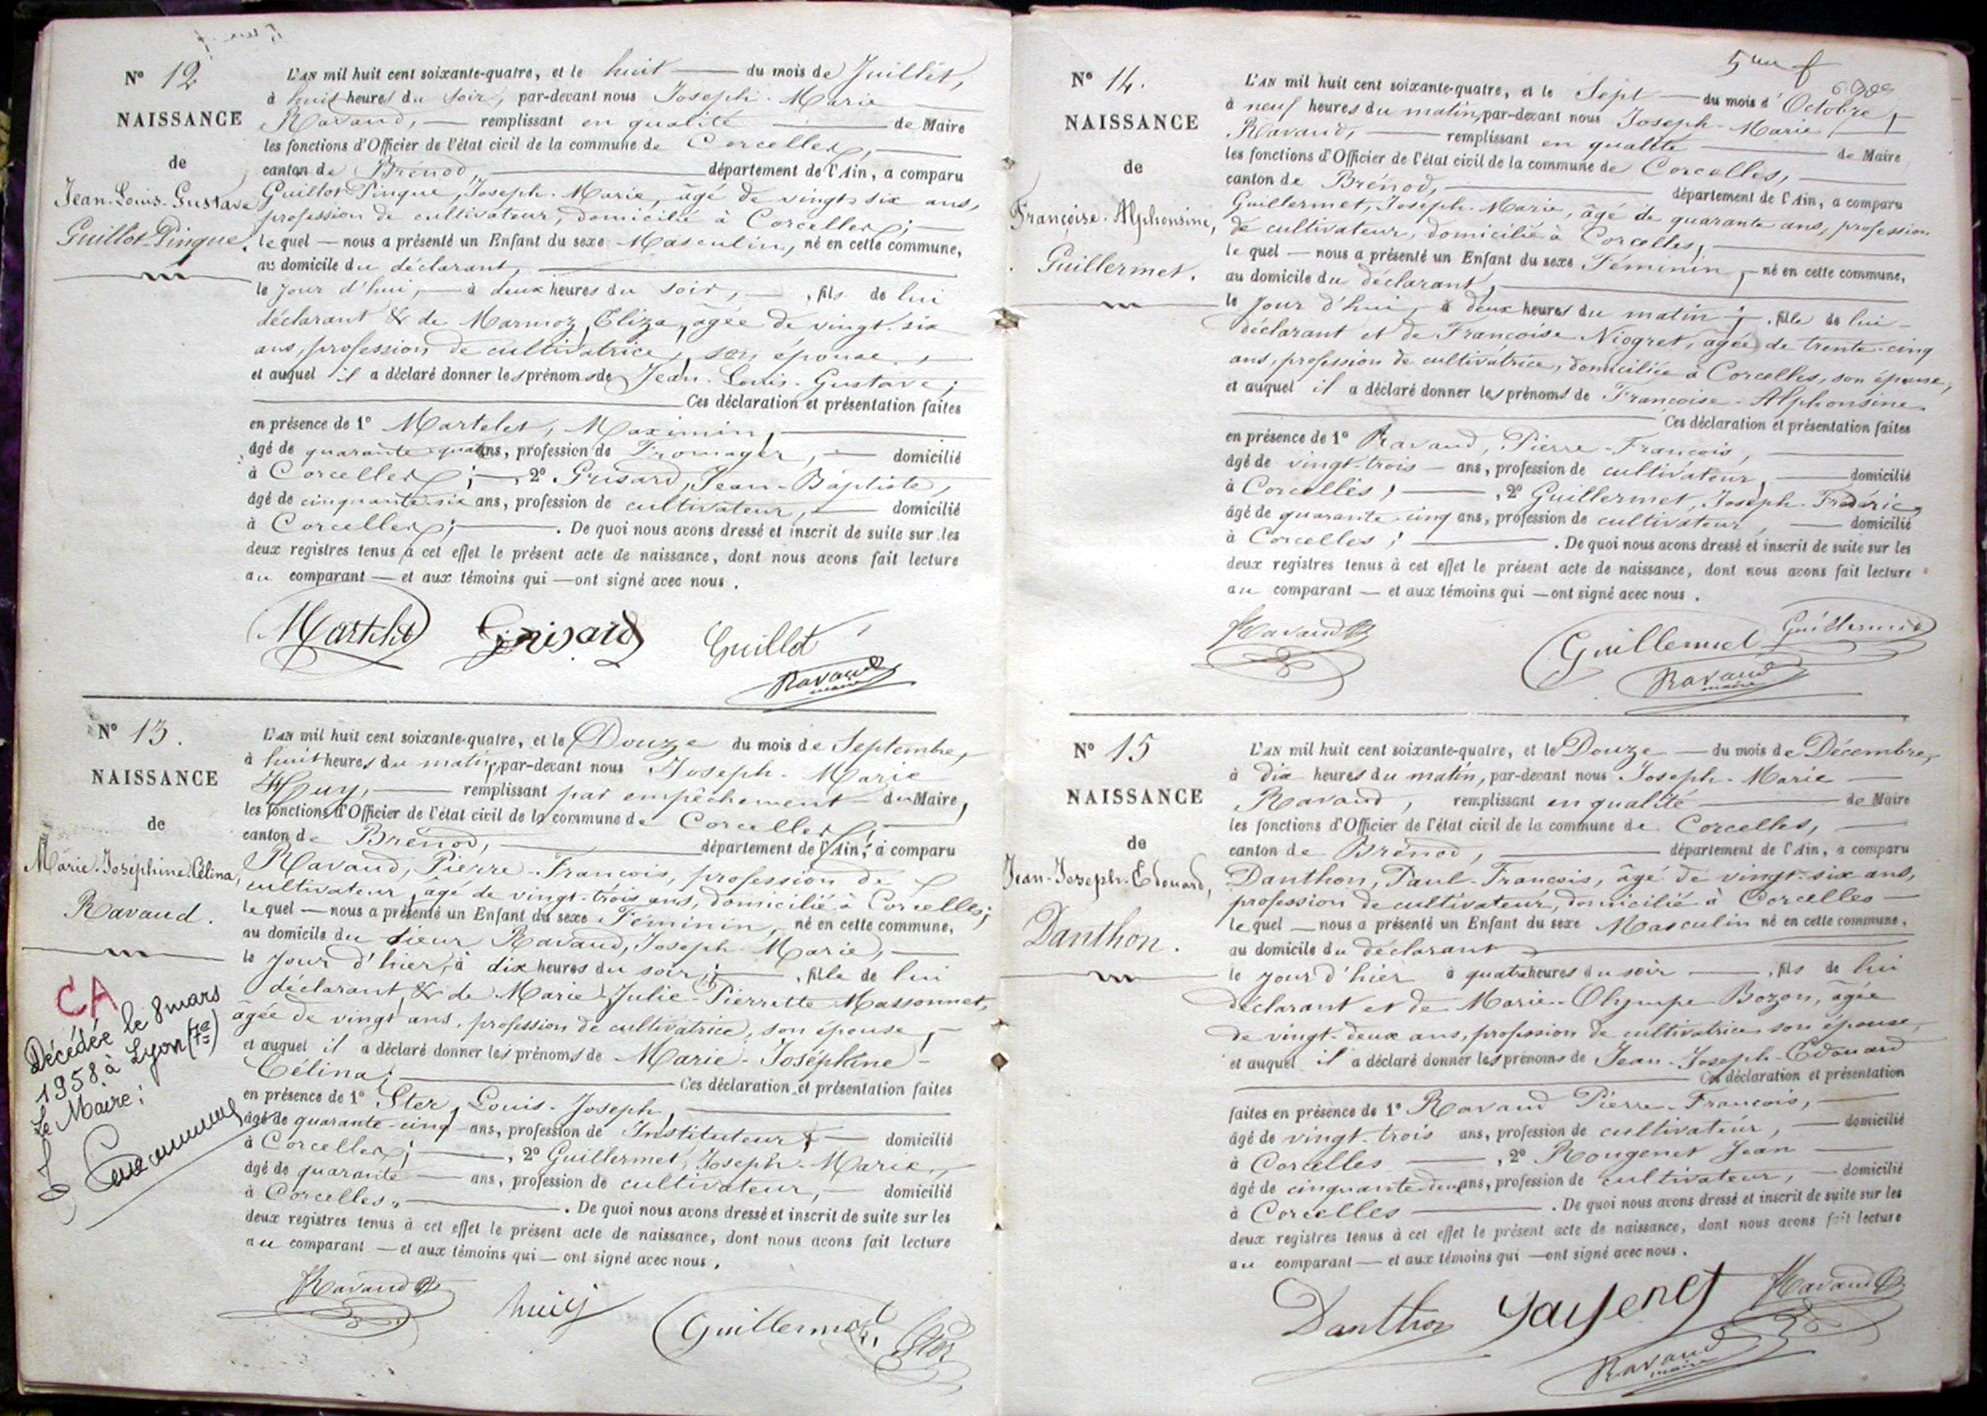 N° 12
NAISSANCE
de
Jean-Louis-Gustave
Guillot-Pingue.
L'AN mil huit cent soixante-quatre, et le huit — du mois de Juillet,
à huit heures du soir, par-devant nous Joseph-Marie
Ravaud, — remplissant en qualité — de Maire
les fonctions d'Officier de l'état civil de la commune de Corcelles, —
canton de Brénod, — département de l'Ain, a comparu
Guillot-Pingue, Joseph-Marie, âgé de vingt-six ans,
profession de cultivateur, domicilié à Corcelles; —
le quel — nous a présenté un Enfant du sexe Masculin, né en cette commune,
au domicile du déclarant, —
le jour d'hui, — à deux heures du soir, — , fils de lui
déclarant & de Marmoz Eliza, âgée de vingt-six
ans, profession de cultivatrice, son épouse, —
et auquel il a déclaré donner les prénoms de Jean-Louis-Gustave;
— Ces déclaration et présentation faites
en présence de 1° Martelet, Maximin, —
âgé de quarante-quatre ans, profession de Fromager, — domicilié
à Corcelles; — , 2° Grisard, Jean-Baptiste,
âgé de cinquante-six ans, profession de cultivateur, — domicilié
à Corcelles; — . De quoi nous avons dressé et inscrit de suite sur les
deux registres tenus à cet effet le présent acte de naissance, dont nous avons fait lecture
au comparant — et aux témoins qui — ont signé avec nous.
Martelet Grisard Guillot
Ravaud
maire
N° 13.
NAISSANCE
de
Marie-Joséphine-Célina,
Ravaud.
CA
Décédée le 8 mars
1958 à Lyon (7e)
Le Maire:
L'AN mil huit cent soixante-quatre, et le Douze du mois de Septembre,
à huit heures du matin, par-devant nous Joseph-Marie
Huy, — remplissant par empêchement du Maire,
les fonctions d'Officier de l'état civil de la commune de Corcelles; —
canton de Brénod, — département de l'Ain, a comparu
Ravaud, Pierre-François, profession de
cultivateur, âgé de vingt-trois ans, domicilié à Corcelles;
le quel — nous a présenté un Enfant du sexe Féminin, né en cette commune,
au domicile du sieur Ravaud, Joseph-Marie, —
le jour d'hier, à dix heures du soir; — , fille de lui
déclarant & de Marie-Julie-Pierrette Massonnet,
âgée de vingt ans, profession de cultivatrice, son épouse, —
et auquel il a déclaré donner les prénoms de Marie-Joséphine-
Célina; — Ces déclaration et présentation faites
en présence de 1° Ster, Louis-Joseph, —
âgé de quarante-cinq ans, profession de Instituteur, — domicilié
à Corcelles; — , 2° Guillermet, Joseph-Marie, —
âgé de quarante — ans, profession de cultivateur, — domicilié
à Corcelles. — . De quoi nous avons dressé et inscrit de suite sur les
deux registres tenus à cet effet le présent acte de naissance, dont nous avons fait lecture
au comparant — et aux témoins qui — ont signé avec nous.
Ravaud huy Guillermet Ster
5me f
N° 14.
NAISSANCE
de
Françoise-Alphonsine,
Guillermet.
L'AN mil huit cent soixante-quatre, et le Sept — du mois d'Octobre,
à neuf heures du matin, par-devant nous Joseph-Marie
Ravaud, — remplissant en qualité — de Maire
les fonctions d'Officier de l'état civil de la commune de Corcelles, —
canton de Brénod, — département de l'Ain, a comparu
Guillermet, Joseph-Marie, âgé de quarante ans, profession
de cultivateur, domicilié à Corcelles, —
le quel — nous a présenté un Enfant du sexe Féminin, — né en cette commune,
au domicile du déclarant, —
le jour d'hui, à deux heures du matin; — , fille de lui —
déclarant et de Françoise Niogret, âgée de trente-cinq
ans, profession de cultivatrice, domiciliée à Corcelles, son épouse,
et auquel il a déclaré donner les prénoms de Françoise-Alphonsine
— Ces déclaration et présentation faites
en présence de 1° Ravaud, Pierre-François, —
âgé de vingt-trois — ans, profession de cultivateur, — domicilié
à Corcelles; — , 2° Guillermet, Joseph-Fréderic,
âgé de quarante-cinq ans, profession de cultivateur, — domicilié
à Corcelles; — . De quoi nous avons dressé et inscrit de suite sur les
deux registres tenus à cet effet le présent acte de naissance, dont nous avons fait lecture
au comparant — et aux témoins qui — ont signé avec nous.
Ravaud Guillermet Guillermet
Ravaud
maire
N° 15
NAISSANCE
de
Jean-Joseph-Edouard,
Danthon.
L'AN mil huit cent soixante-quatre, et le Douze — du mois de Décembre,
à dix heures du matin, par-devant nous Joseph-Marie —
Ravaud, remplissant en qualité — de Maire
les fonctions d'Officier de l'état civil de la commune de Corcelles, —
canton de Brénod, — département de l'Ain, a comparu
Danthon, Paul-François, âgé de vingt-six ans,
profession de cultivateur, domicilié à Corcelles —
le quel — nous a présenté un Enfant du sexe Masculin né en cette commune,
au domicile du déclarant —
le jour d'hier à quatre heures du soir — , fils de lui
déclarant et de Marie-Olympe Bozon, âgée
de vingt-deux ans, profession de cultivatrice son épouse,
et auquel il a déclaré donner les prénoms de Jean-Joseph-Edouard
— Ces déclaration et présentation
faites en présence de 1° Ravaud Pierre-François, —
âgé de vingt-trois ans, profession de cultivateur, — domicilié
à Corcelles — , 2° Rougenet Jean —
âgé de cinquante-deux ans, profession de cultivateur, — domicilié
à Corcelles — . De quoi nous avons dressé et inscrit de suite sur les
deux registres tenus à cet effet le présent acte de naissance, dont nous avons fait lecture
au comparant — et aux témoins qui — ont signé avec nous.
Danthon Ravaud
Ravaud
maire